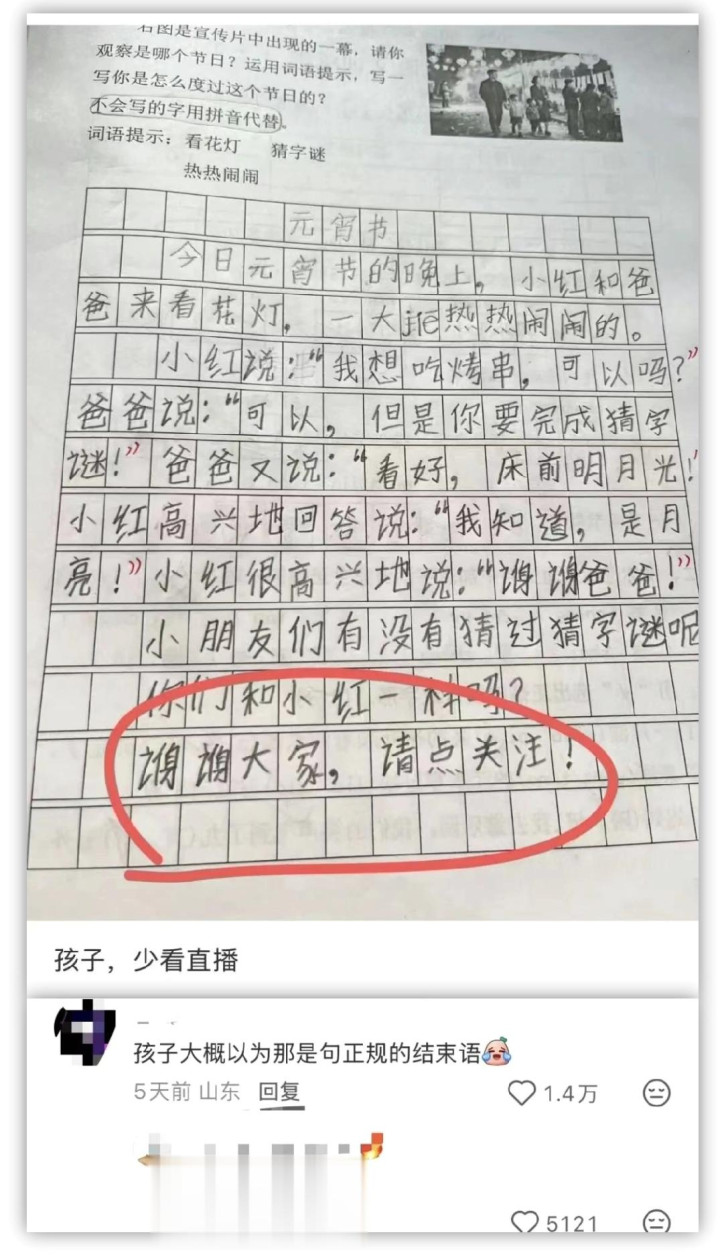 右图是宣传片中出现的一幕，请你
观察是哪个节日？运用词语提示，写一
写你是怎么度过这个节日的？
不会写的字用拼音代替。
词语提示：看花灯 猜字谜
热热闹闹
元宵节
今日元宵节的晚上，小红和爸
爸来看花灯，一大jiē热热闹闹的。
小红说：“我想吃烤串，可以吗？”
爸爸说：“可以，但是你要完成猜字
谜！”爸爸又说：“看好，床前明月光！
小红高兴地回答说：“我知道，是月
亮！”小红很高兴地说：“谢谢爸爸！”
小朋友们有没有猜过猜字谜呢
你们和小红一样吗？
谢谢大家，请点关注！
孩子，少看直播
孩子大概以为那是句正规的结束语
5天前 山东 回复 1.4万
5121